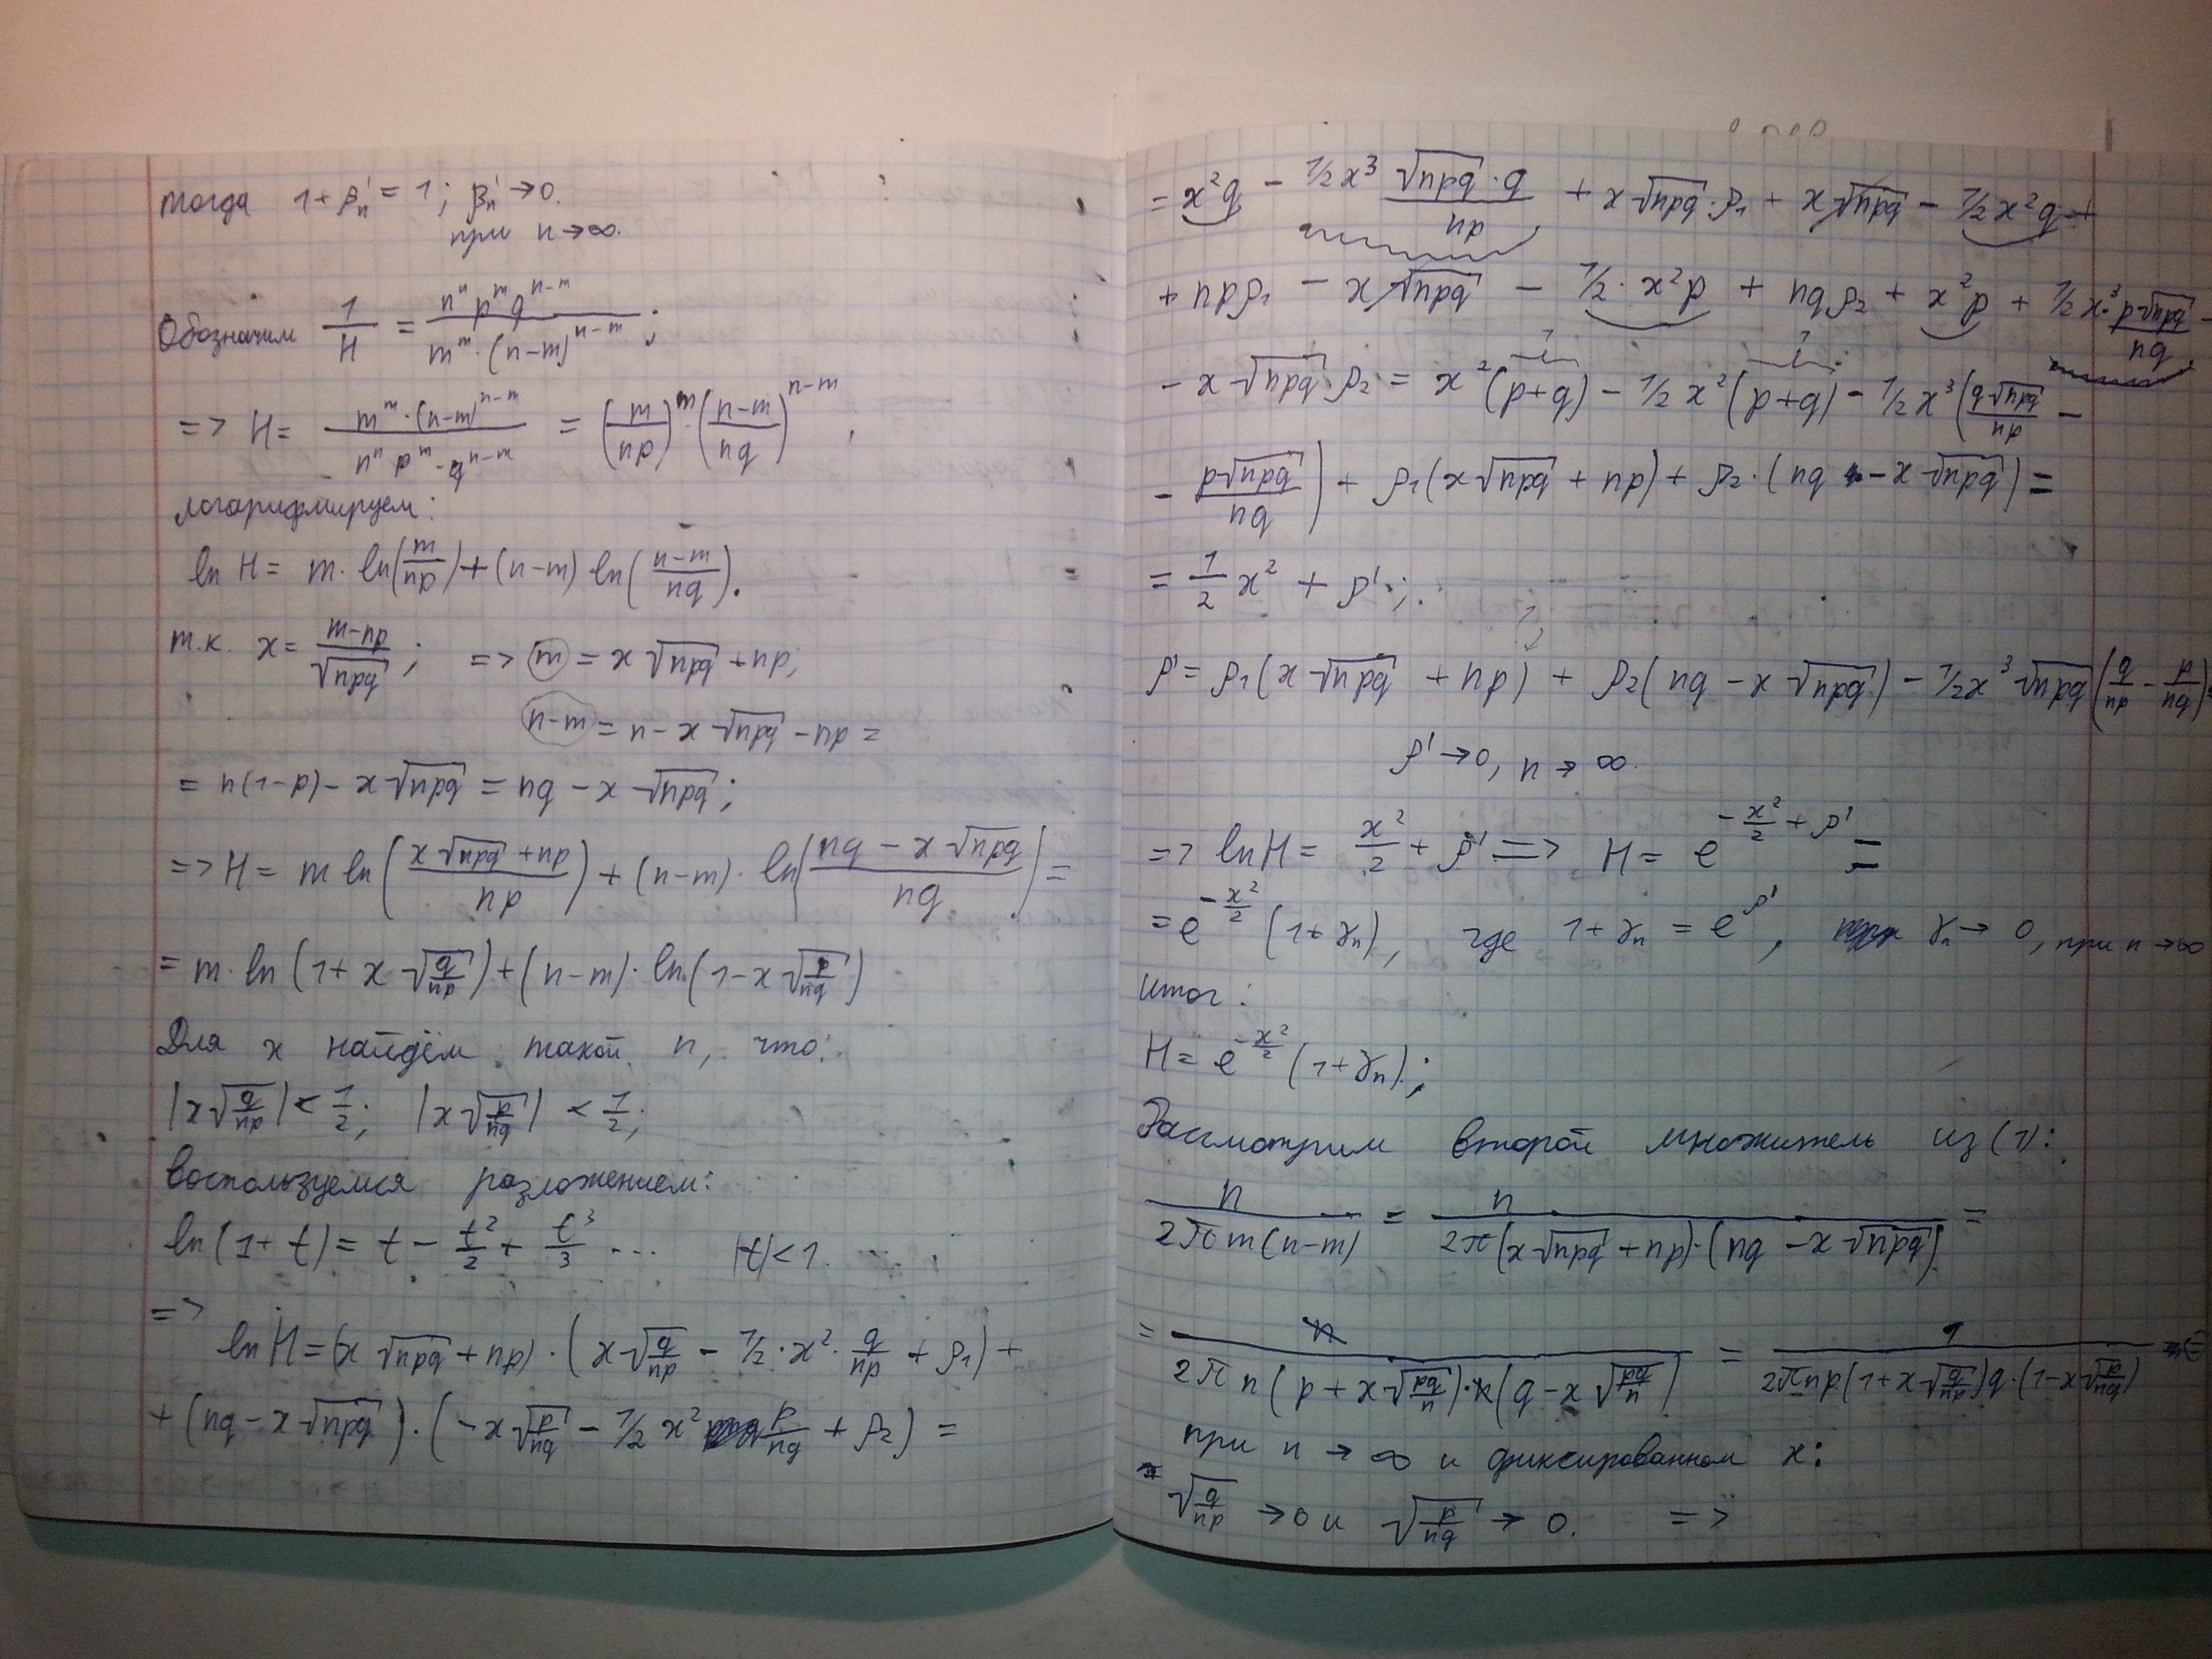 тогда 1+βₙ' = 1; βₙ' → 0.
при n→∞.
Обозначим 1/H = nⁿ pᵐ qⁿ⁻ᵐ / mᵐ·(n-m)ⁿ⁻ᵐ ;
=> H = mᵐ·(n-m)ⁿ⁻ᵐ / nⁿ pᵐ·qⁿ⁻ᵐ = (m/np)ᵐ·((n-m)/nq)ⁿ⁻ᵐ ;
логарифмируем:
ln H = m·ln(m/np) + (n-m) ln((n-m)/nq).
т.к. x = (m-np)/√npq ; => m = x√npq + np;
n-m = n - x√npq - np =
= n(1-p) - x√npq = nq - x√npq ;
=> H = m ln((x√npq + np)/np) + (n-m)·ln((nq - x√npq)/nq) =
= m·ln(1 + x√(q/np)) + (n-m)·ln(1 - x√(p/nq))
Для x найдём такой n, что:
|x√(q/np)| < 1/2; |x√(p/nq)| < 1/2;
воспользуемся разложением:
ln(1+t) = t - t²/2 + t³/3 ... |t|<1.
=>
ln H = (x√npq + np)·(x√(q/np) - 1/2·x²·q/np + ρ₁) +
+ (nq - x√npq)·(-x√(p/nq) - 1/2 x² p/nq + ρ₂) =
= x²q - 1/2 x³ √npq·q/np + x√npq·ρ₁ + x√npq - 1/2 x²q +
+ npρ₁ - x√npq - 1/2·x²p + nqρ₂ + x²p + 1/2 x³·p√npq/nq -
- x√npq·ρ₂ = x²(p+q) - 1/2 x²(p+q) - 1/2 x³(q√npq/np -
- p√npq/nq) + ρ₁(x√npq + np) + ρ₂·(nq - x√npq) =
= 1/2 x² + ρ' ;
ρ' = ρ₁(x√npq + np) + ρ₂(nq - x√npq) - 1/2 x³√npq(q/np - p/nq)
ρ' → 0, n → ∞.
=> ln H = x²/2 + ρ' => H = e^(-x²/2 + ρ') =
= e^(-x²/2) (1+γₙ), где 1+γₙ = e^ρ', γₙ → 0, при n→∞
итог:
H = e^(-x²/2) (1+γₙ) ;
Рассмотрим второй множитель из (1):
n / 2πm(n-m) = n / 2π(x√npq + np)·(nq - x√npq) =
= n / 2πn(p + x√(pq/n))·n(q - x√(pq/n)) = 1 / 2πnp(1 + x√(q/np))q·(1 - x√(p/nq)) =
при n → ∞ и фиксированном x:
√(q/np) → 0 и √(p/nq) → 0. =>